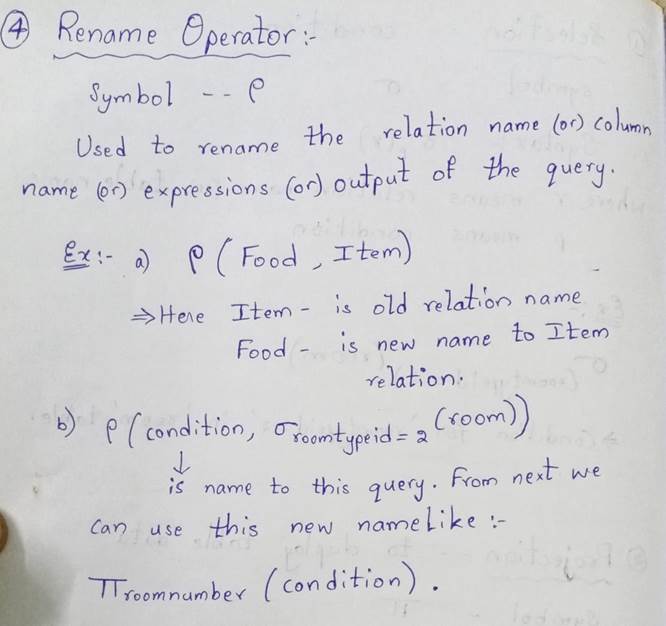 ④ Rename Operator :-
Symbol -- ρ
Used to rename the relation name (or) column
name (or) expressions (or) output of the query.
Ex :- a) ρ (Food , Item)
⇒ Here Item - is old relation name
Food - is new name to Item
relation.
b) ρ (condition, σ roomtypeid = 2 (room))
↓
is name to this query. From next we
can use this new name like :-
π roomnumber (condition) .